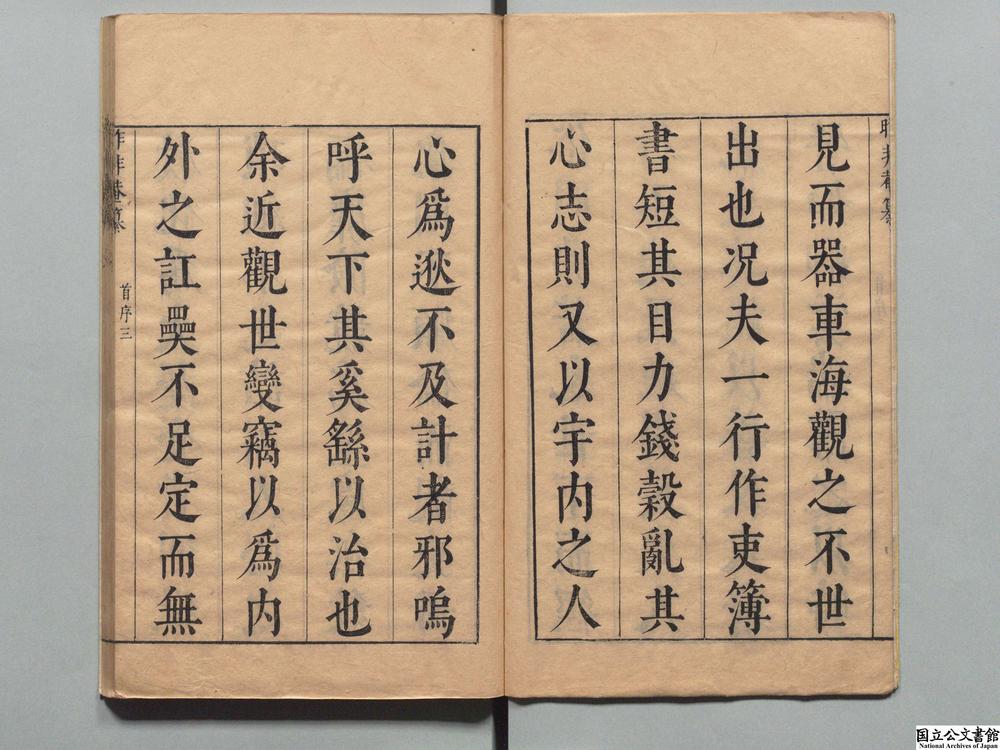 見而器車海觀之不世
出也况夫一行作吏簿
書短其目力錢榖亂其
心志則又以宇内之人
心爲逖不及計者邪嗚
呼天下其奚繇以治也
余近觀世變竊以爲内
外之訌㒹不足定而無
昨非菴纂
首序三
国立公文書館
National Archives of Japan